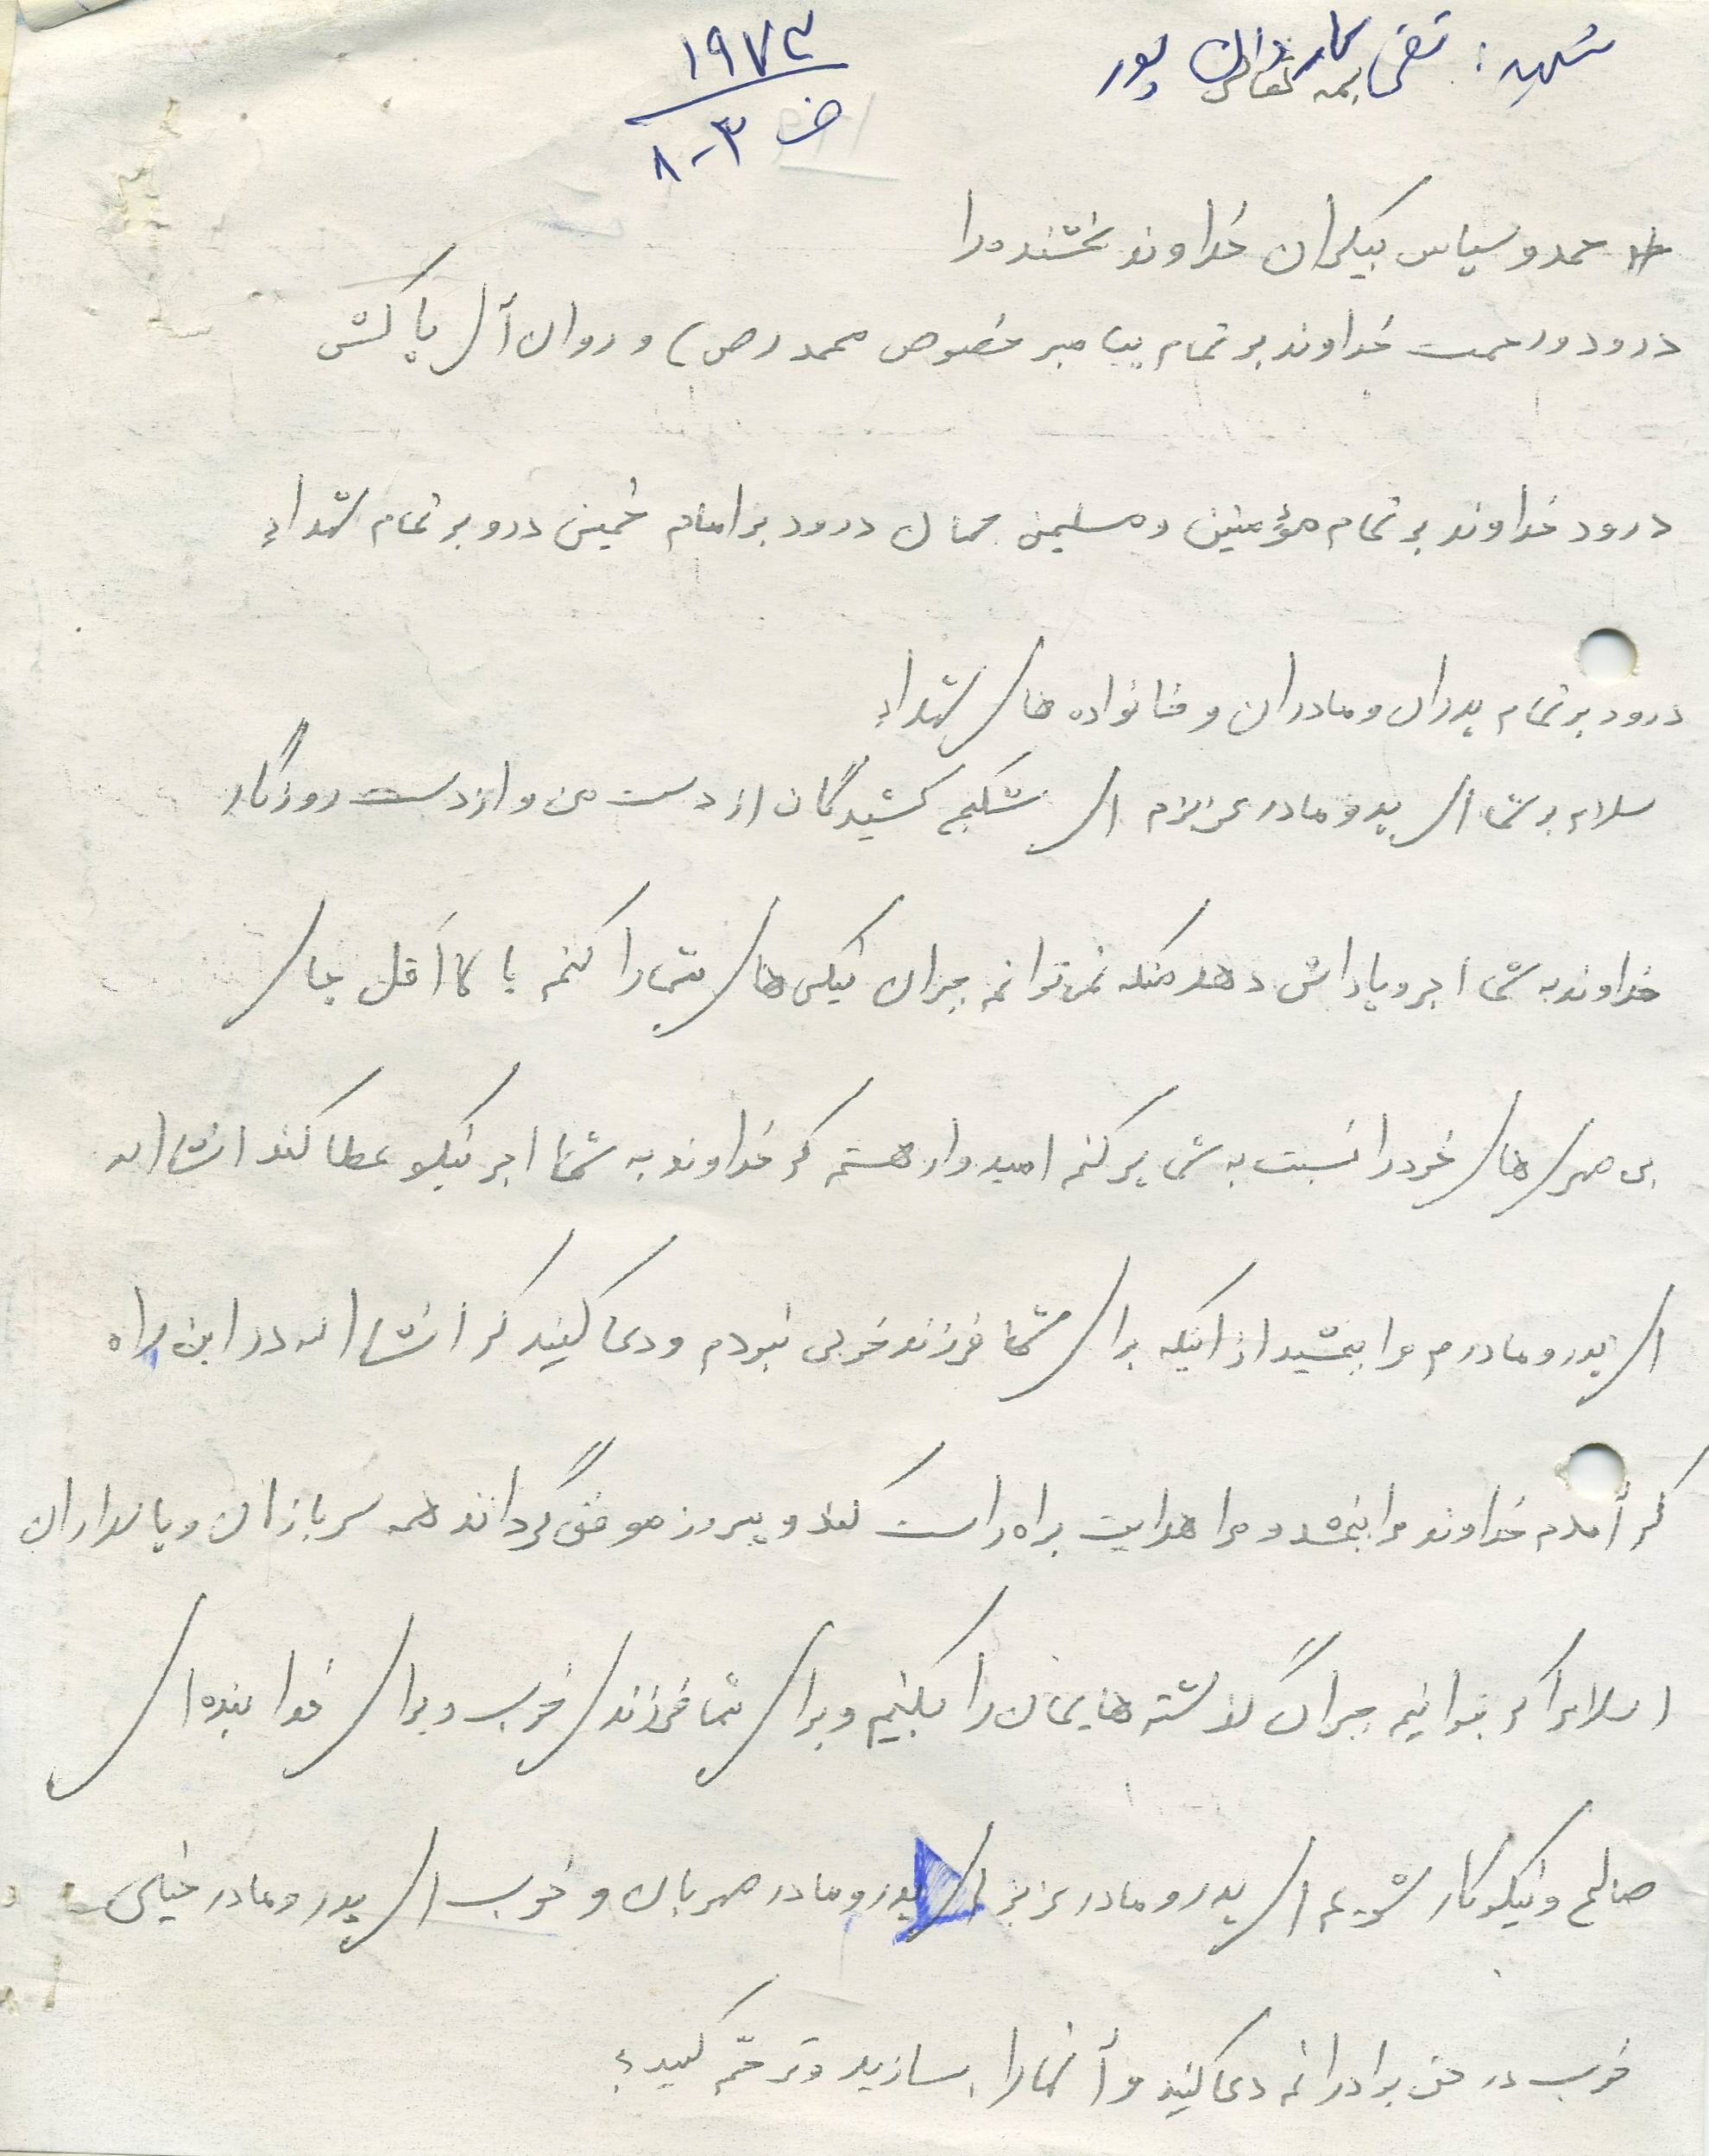 شهید: تقی کاردان پور
۱۹۷۳
ض ۳-۸
حمد و سپاس بیکران خداوند بخشنده را
درود و رحمت خداوند بر تمام پیامبر خصوص محمد (ص) و روان آل پاکش
درود خداوند بر تمام مؤمنین و مسلمین جهان درود بر امام خمینی درو بر تمام شهداء
درود بر تمام پدران و مادران و خانواده های شهداء
سلام بر شما ای پدر و مادر عزیزم ای شکنجه کشیدگان از دست من و از دست روزگار
خداوند به شما اجر و پاداش دهد منکه نمی توانم جبران نیکی های شما را کنم یا لااقل جای
بی مهری های خود را نسبت به شما پر کنم امیدوار هستم که خداوند به شما اجر نیکو عطا کند انشا اله
ای پدر و مادرم مرا ببخشید از اینکه برای شما فرزند خوبی نبودم و دعا کنید که انشا اله در این راه
که آمدم خداوند مرا ببخشد و مرا هدایت براه راست کند و پیروز موفق گرداند همه سربازان و پاسداران
اسلام را که بتوانیم جبران گذشته هایمان را بکنیم و برای شما فرزندی خوب و برای خدا بنده ای
صالح و نیکوکار شویم ای پدر و مادر عزیز ای پدر و مادر مهربان و خوب ای پدر و مادر خیلی
خوب در حق برادرانم دعا کنید و آنها را بسازید و ترحّم کنید؟